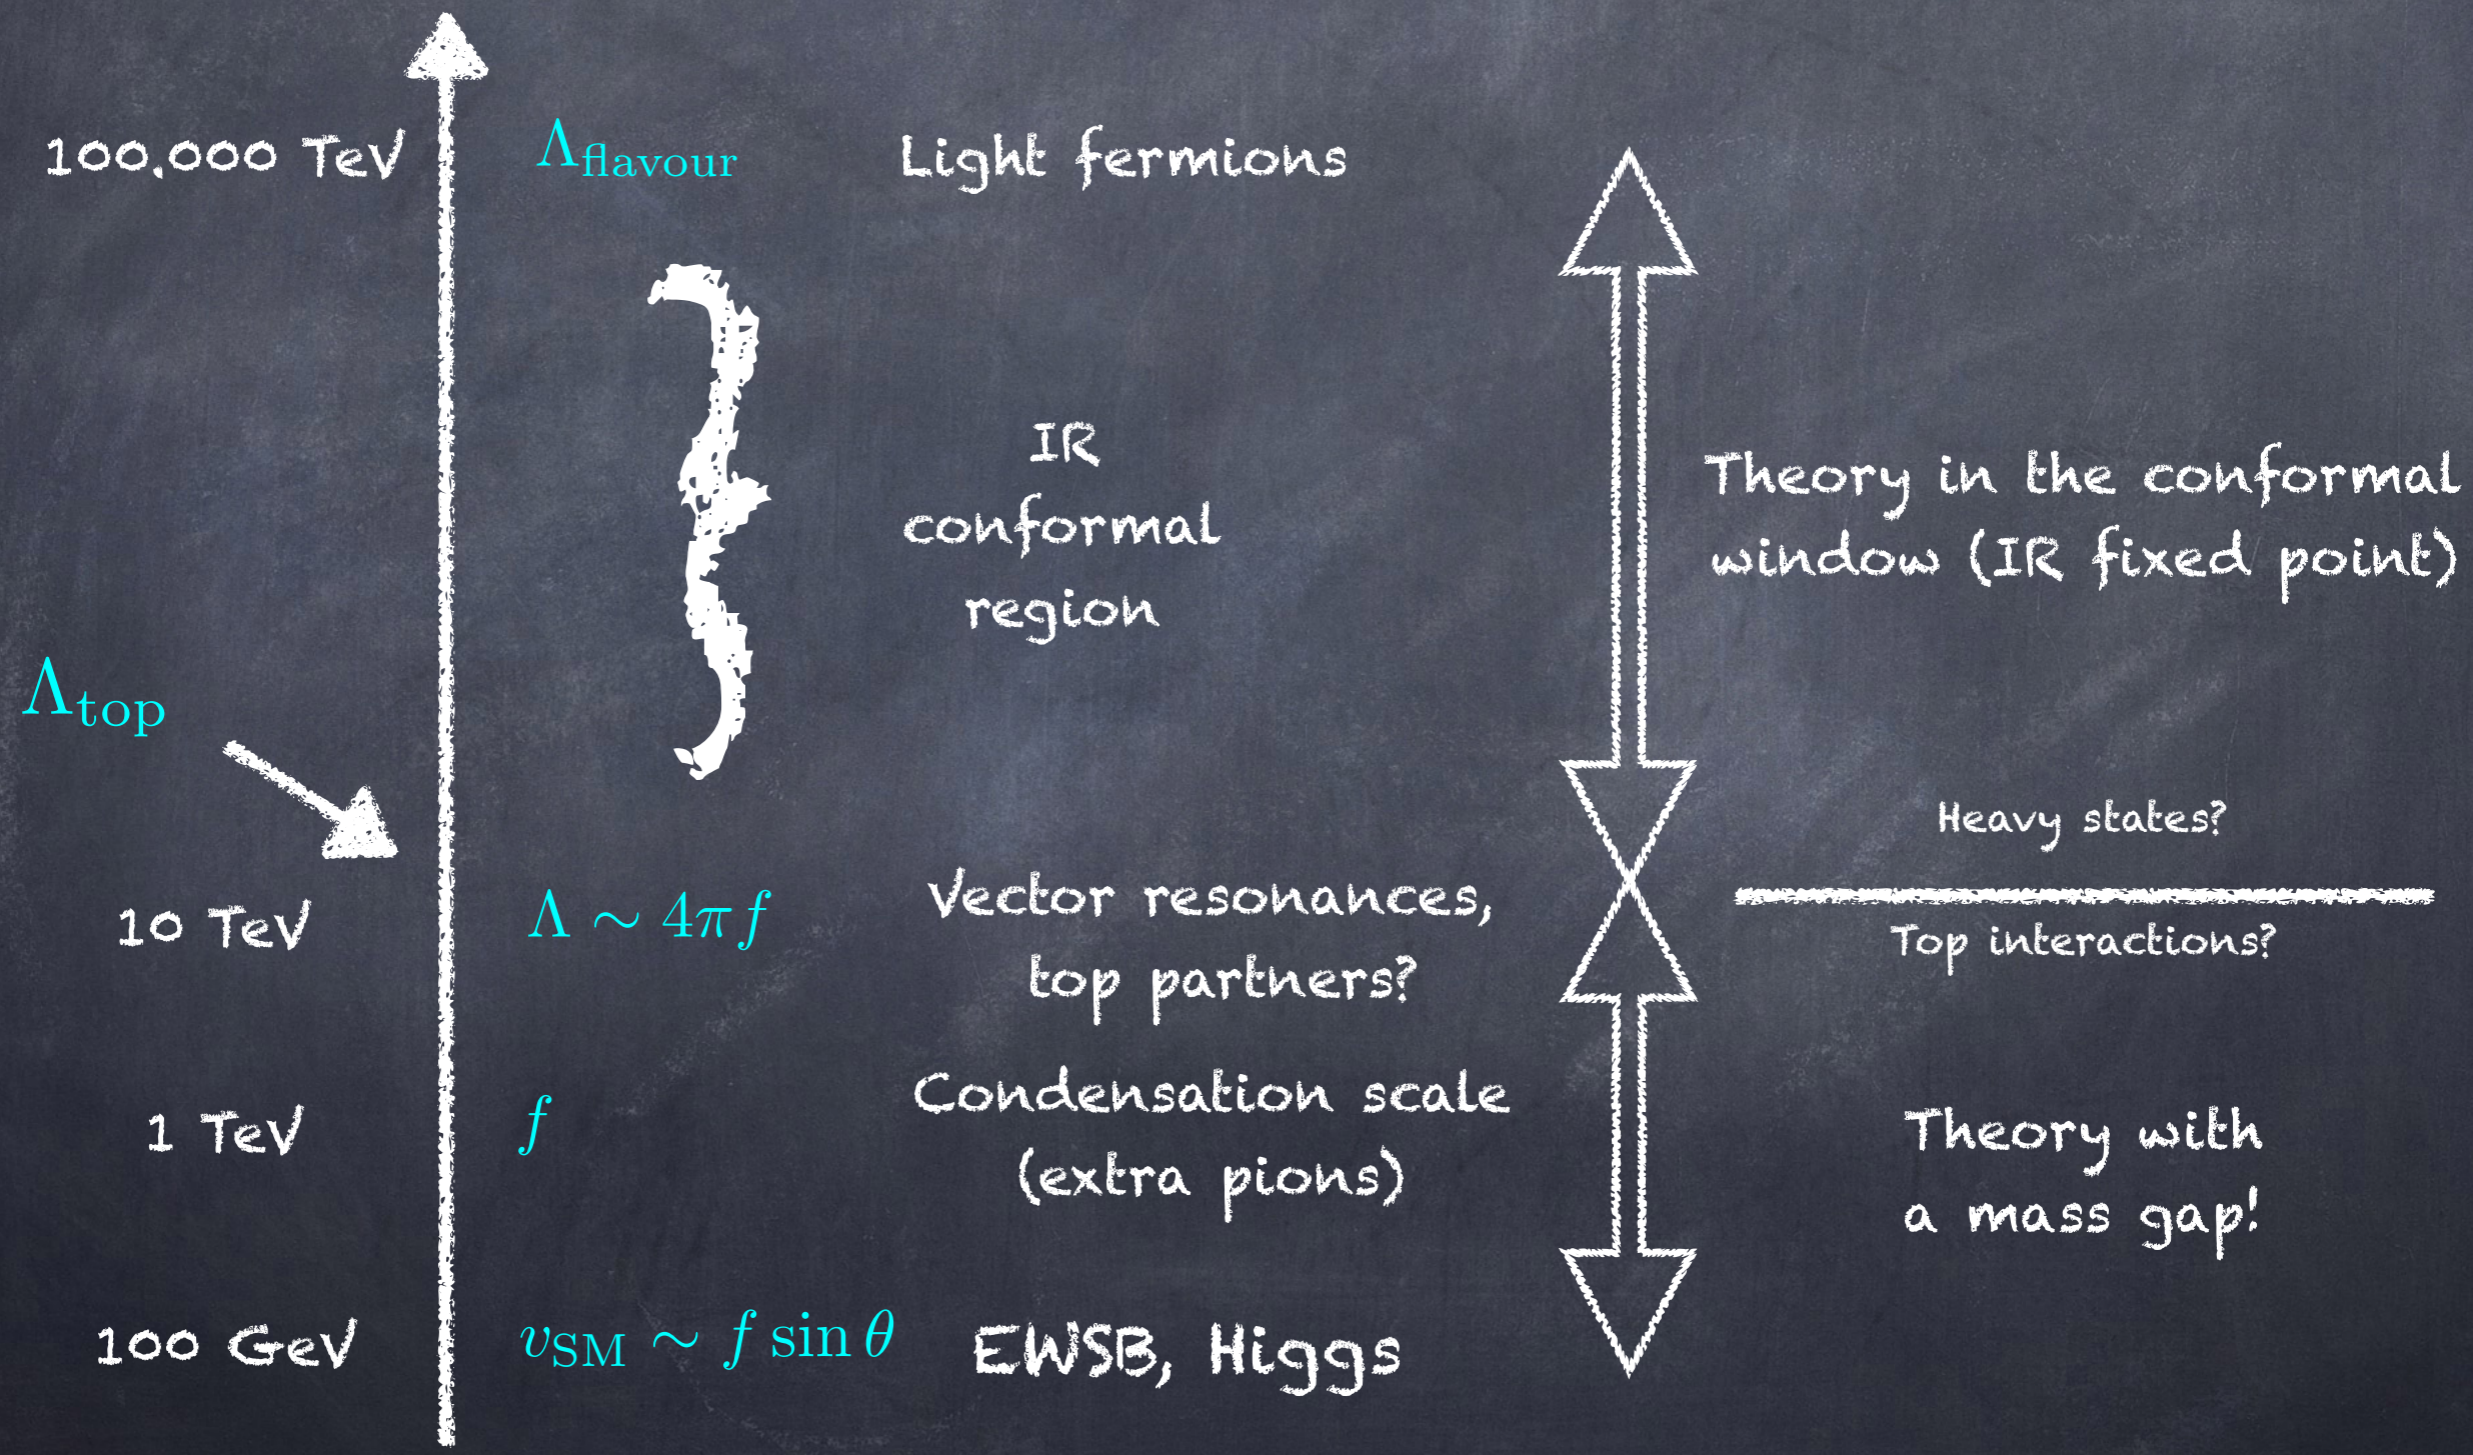 100.000 TeV
Λ_flavour
Light fermions
IR
conformal
region
Theory in the conformal
window (IR fixed point)
Λ_top
Heavy states?
10 TeV
Λ ∼ 4πf
Vector resonances,
top partners?
Top interactions?
1 TeV
f
Condensation scale
(extra pions)
Theory with
a mass gap!
100 GeV
v_SM ∼ f sin θ
EWSB, Higgs